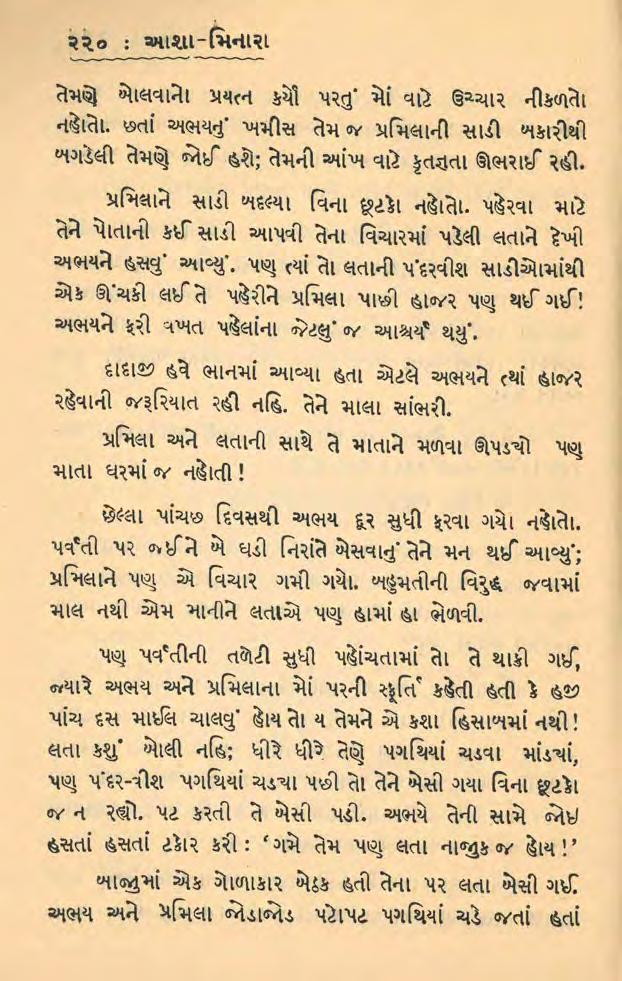 ૨૨૦ : આશા-મિનારા
તેમણે બોલવાનો પ્રયત્ન કર્યો પરતું મોં વાટે ઉચ્ચાર નીકળતો
નહોતો. છતાં અભયનું ખમીસ તેમ જ પ્રમિલાની સાડી બકારીથી
બગડેલી તેમણે જોઈ હશે; તેમની આંખ વાટે કૃતજ્ઞતા ઊભરાઈ રહી.
પ્રમિલાને સાડી બદલ્યા વિના છૂટકો નહોતો. પહેરવા માટે
તેને પોતાની કઈ સાડી આપવી તેના વિચારમાં પડેલી લતાને દેખી
અભયને હસવું આવ્યું. પણ ત્યાં તો લતાની પંદરવીશ સાડીઓમાંથી
એક ઊંચકી લઈ તે પહેરીને પ્રમિલા પાછી હાજર પણ થઈ ગઈ!
અભયને ફરી વખત પહેલાંના જેટલું જ આશ્ચર્ય થયું.
દાદાજી હવે ભાનમાં આવ્યા હતા એટલે અભયને ત્યાં હાજર
રહેવાની જરૂરિયાત રહી નહિ. તેને માલા સાંભરી.
પ્રમિલા અને લતાની સાથે તે માતાને મળવા ઊપડચો પણ
માતા ઘરમાં જ નહોતી!
છેલ્લા પાંચછ દિવસથી અભય દૂર સુધી ફરવા ગયો નહોતો.
પર્વતી પર જઈને બે ઘડી નિરાંતે બેસવાનું તેને મન થઈ આવ્યું;
પ્રમિલાને પણ એ વિચાર ગમી ગયો. બહુમતીની વિરુદ્ધ જવામાં
માલ નથી એમ માનીને લતાએ પણ હામાં હા ભેળવી.
પણ પર્વતીની તળેટી સુધી પહોંચતામાં તો તે થાકી ગઈ,
જ્યારે અભય અને પ્રમિલાના મોં પરની સ્ફૂર્તિ કહેતી હતી કે હજી
પાંચ દસ માઈલ ચાલવું હોય તો ય તેમને એ કશા હિસાબમાં નથી!
લતા કશું બોલી નહિ; ધીરે ધીરે તેણે પગથિયાં ચડવા માંડ્યાં,
પણ પંદર-ત્રીશ પગથિયાં ચડચા પછી તો તેને બેસી ગયા વિના છૂટકો
જ ન રહ્યો. પટ કરતી તે બેસી પડી. અભયે તેની સામે જોઇ
હસતાં હસતાં ટકોર કરી : ‘ગમે તેમ પણ લતા નાજુક જ હોય!’
બાજુમાં એક ગોળાકાર બેઠક હતી તેના પર લતા બેસી ગઈ.
અભય અને પ્રમિલા જોડાજોડ પટોપટ પગથિયાં ચડે જતાં હતાં